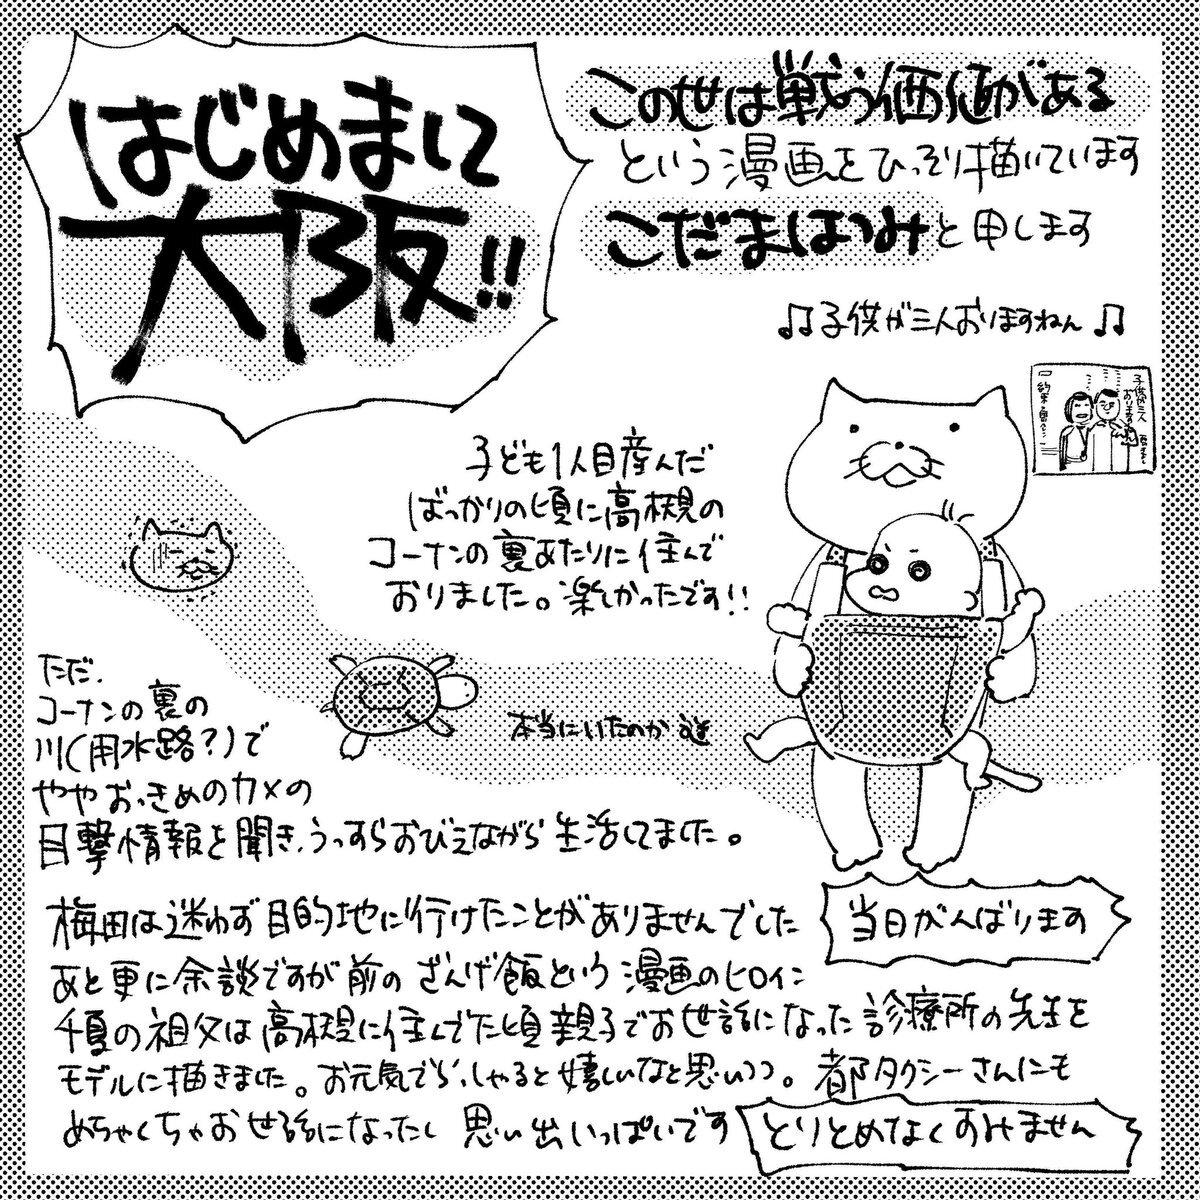 はじめまして
大阪!!
この世は戦う価値がある
という漫画をひっそり描いています
こだまはつみと申します
♫子供が三人おりますねん♫
子供が三人
おりますねん
子ども1人目産んだ
ばっかりの頃に高槻の
コーナンの裏あたりに住んで
おりました。楽しかったです!!
ただ、
コーナンの裏の
川(用水路?)で
ややおっきめのカメの
目撃情報を聞き、うっすらおびえながら生活してました。
本当にいたのか謎
梅田は迷わず目的地に行けたことがありませんでした
当日がんばります
あと更に余談ですが前のざんげ飯という漫画のヒロイン
千夏の祖父は高槻に住んでた頃親子でお世話になった診療所の先生を
モデルに描きました。お元気でらっしゃると嬉しいなと思いつつ。都タクシーさんにも
めちゃくちゃお世話になったし思い出いっぱいです
とりとめなくすみません